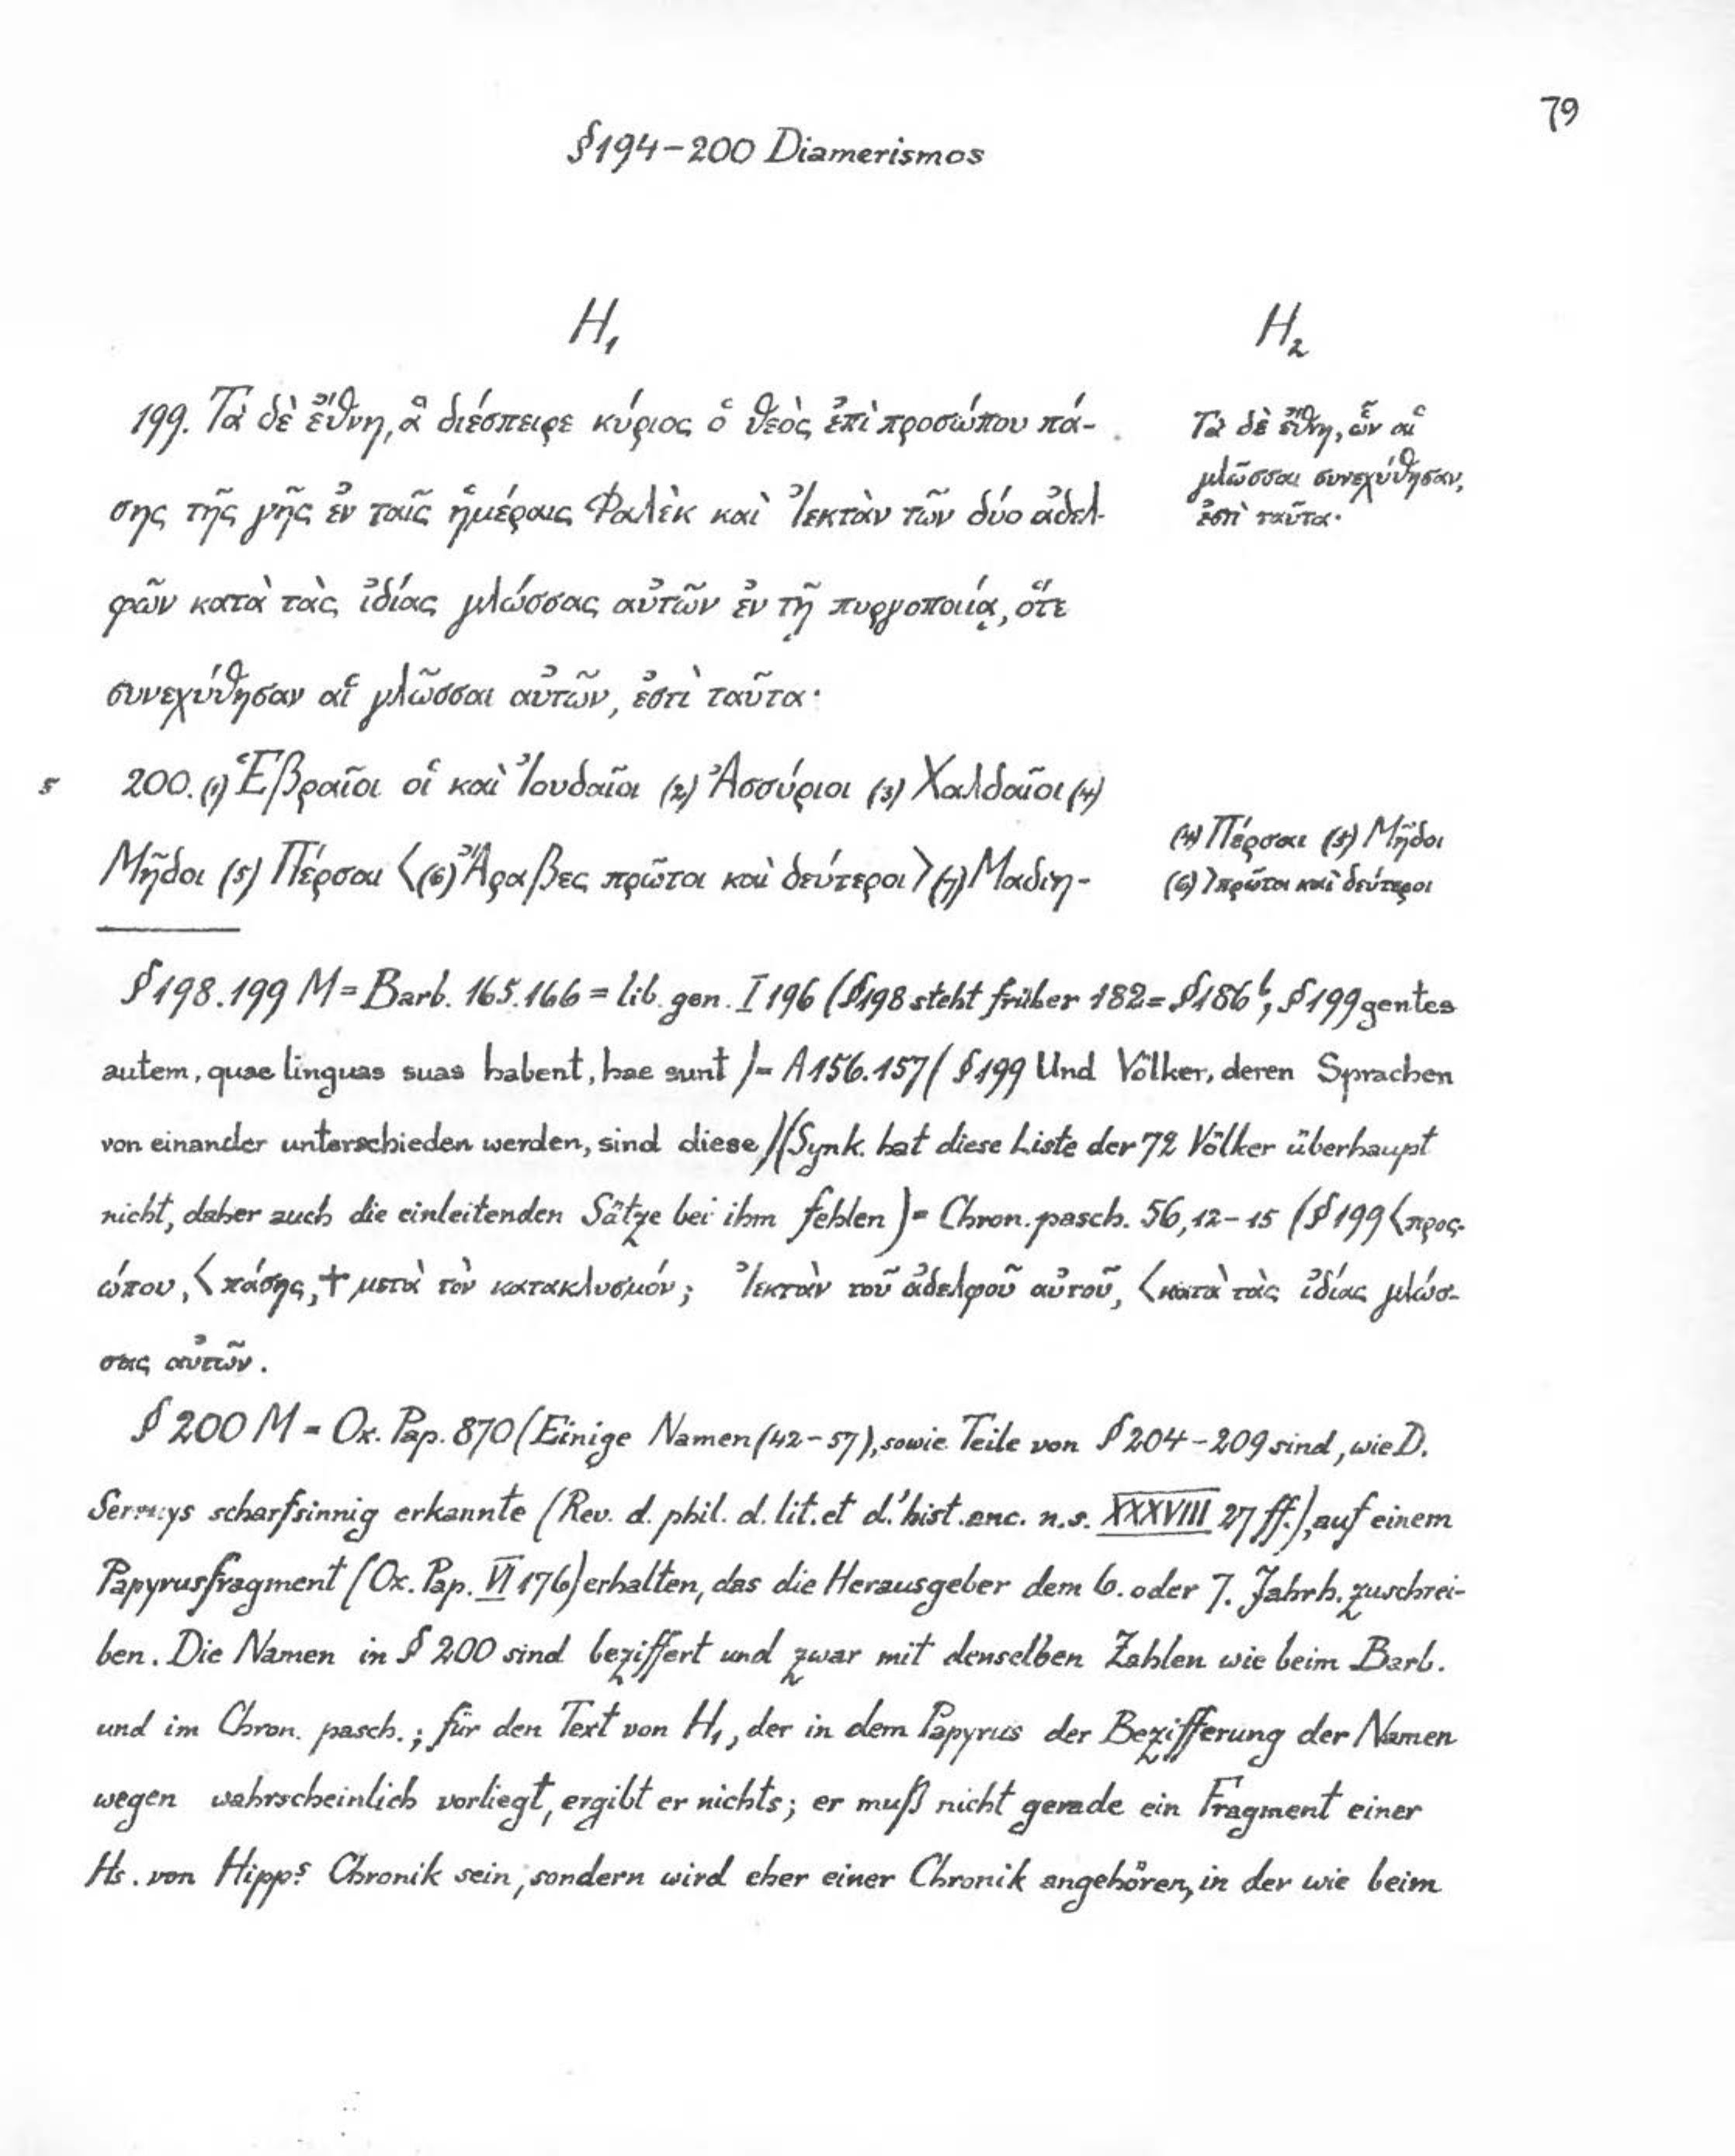 79
§194-200 Diamerismos
H₁
H₂
199. Τὰ δὲ ἔθνη, ἃ διέσπειρε κύριος ὁ θεὸς ἐπὶ προσώπου πά-
σης τῆς γῆς ἐν ταῖς ἡμέραις Φαλὲκ καὶ Ἰεκτὰν τῶν δύο ἀδελ-
φῶν κατὰ τὰς ἰδίας γλώσσας αὐτῶν ἐν τῇ πυργοποιίᾳ, ὅτε
συνεχύθησαν αἱ γλῶσσαι αὐτῶν, ἐστὶ ταῦτα·
Τὰ δὲ ἔθνη, ὧν αἱ
γλῶσσαι συνεχύθησαν,
ἐστὶ ταῦτα·
5 200. (1) Ἑβραῖοι οἱ καὶ Ἰουδαῖοι (2) Ἀσσύριοι (3) Χαλδαῖοι (4)
Μῆδοι (5) Πέρσαι <(6) Ἄραβες πρῶτοι καὶ δεύτεροι> (7) Μαδιη-
(4) Πέρσαι (5) Μῆδοι
(6) > πρῶτοι καὶ δεύτεροι
§198.199 M = Barb. 165.166 = lib. gen. I 196 (§198 steht früher 182 = §186ᵇ, §199 gentes
autem, quae linguas suas habent, hae sunt) = A 156.157 (§199 Und Völker, deren Sprachen
von einander unterschieden werden, sind diese)(Synk. hat diese Liste der 72 Völker überhaupt
nicht, daher auch die einleitenden Sätze bei ihm fehlen) = Chron. pasch. 56,12-15 (§199 < προς-
ώπου, < πάσης, † μετὰ τὸν κατακλυσμόν; Ἰεκτὰν τοῦ ἀδελφοῦ αὐτοῦ, < κατὰ τὰς ἰδίας γλώσ-
σας αὐτῶν.
§200 M = Ox. Pap. 870 (Einige Namen (42-57), sowie Teile von §204-209 sind, wie D.
Serruys scharfsinnig erkannte (Rev. d. phil. d. lit. et d'hist. anc. n.s. XXXVIII 27 ff.), auf einem
Papyrusfragment (Ox. Pap. VI 176) erhalten, das die Herausgeber dem 6. oder 7. Jahrh. zuschrei-
ben. Die Namen in §200 sind beziffert und zwar mit denselben Zahlen wie beim Barb.
und im Chron. pasch.; für den Text von H₁, der in dem Papyrus der Bezifferung der Namen
wegen wahrscheinlich vorliegt, ergibt er nichts; er muß nicht gerade ein Fragment einer
Hs. von Hipps Chronik sein, sondern wird eher einer Chronik angehören, in der wie beim